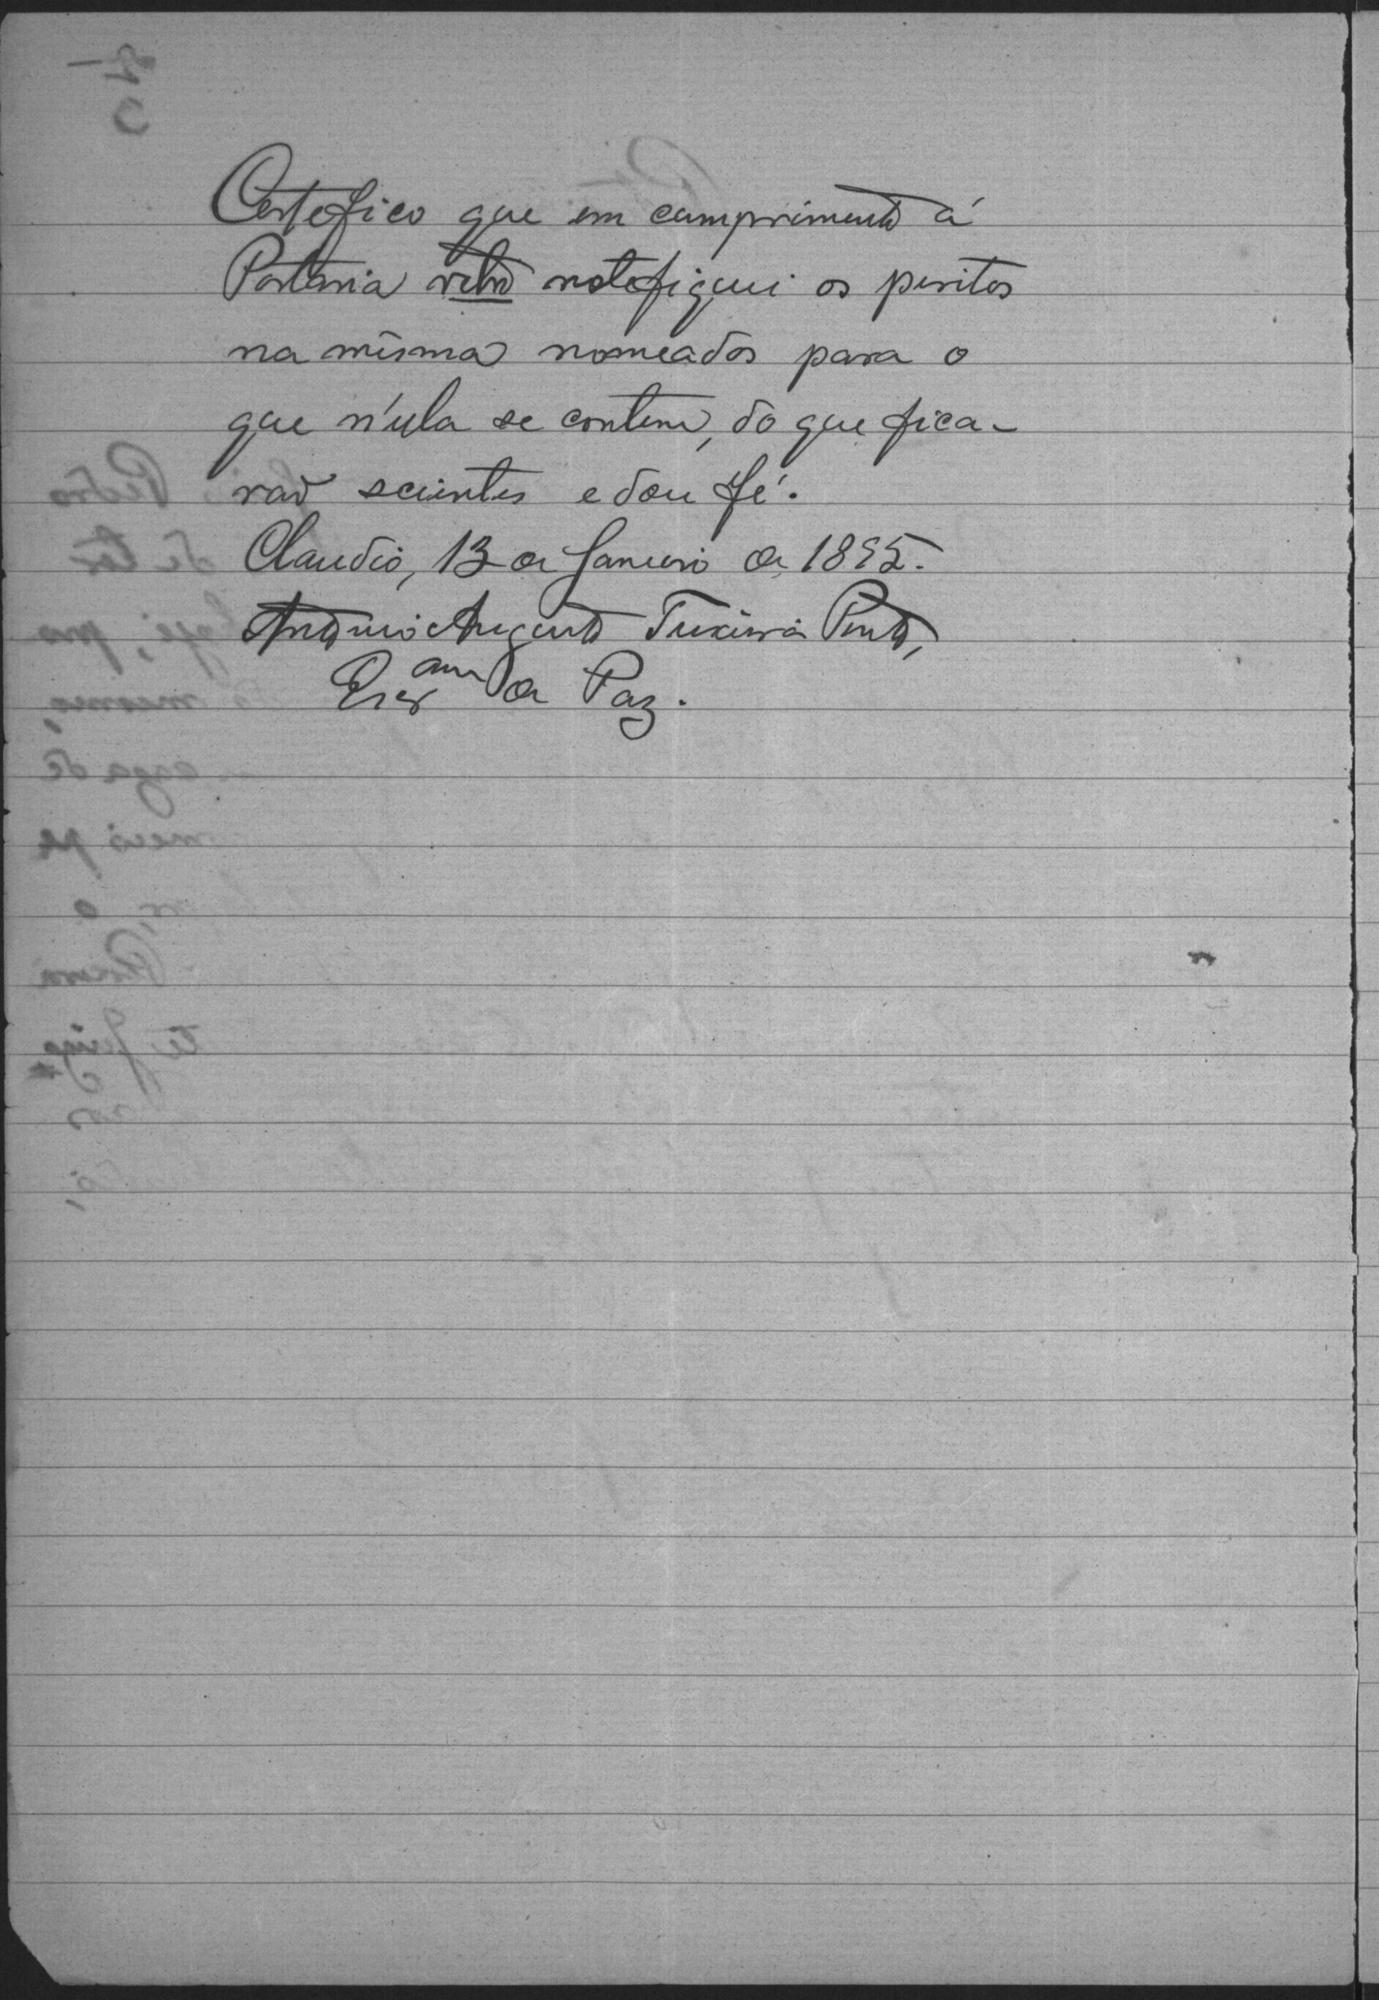 Certefico que em cumprimento á
Portaria retro notefiquei os peritos
na mesma nomeados para o
que n'ella se contem, do que fica-
rão scientes e dou fé.
Claudio, 13 de Janeiro de 1895.
Antonio Augusto Teixeira Pinto,
Escr am de Paz.